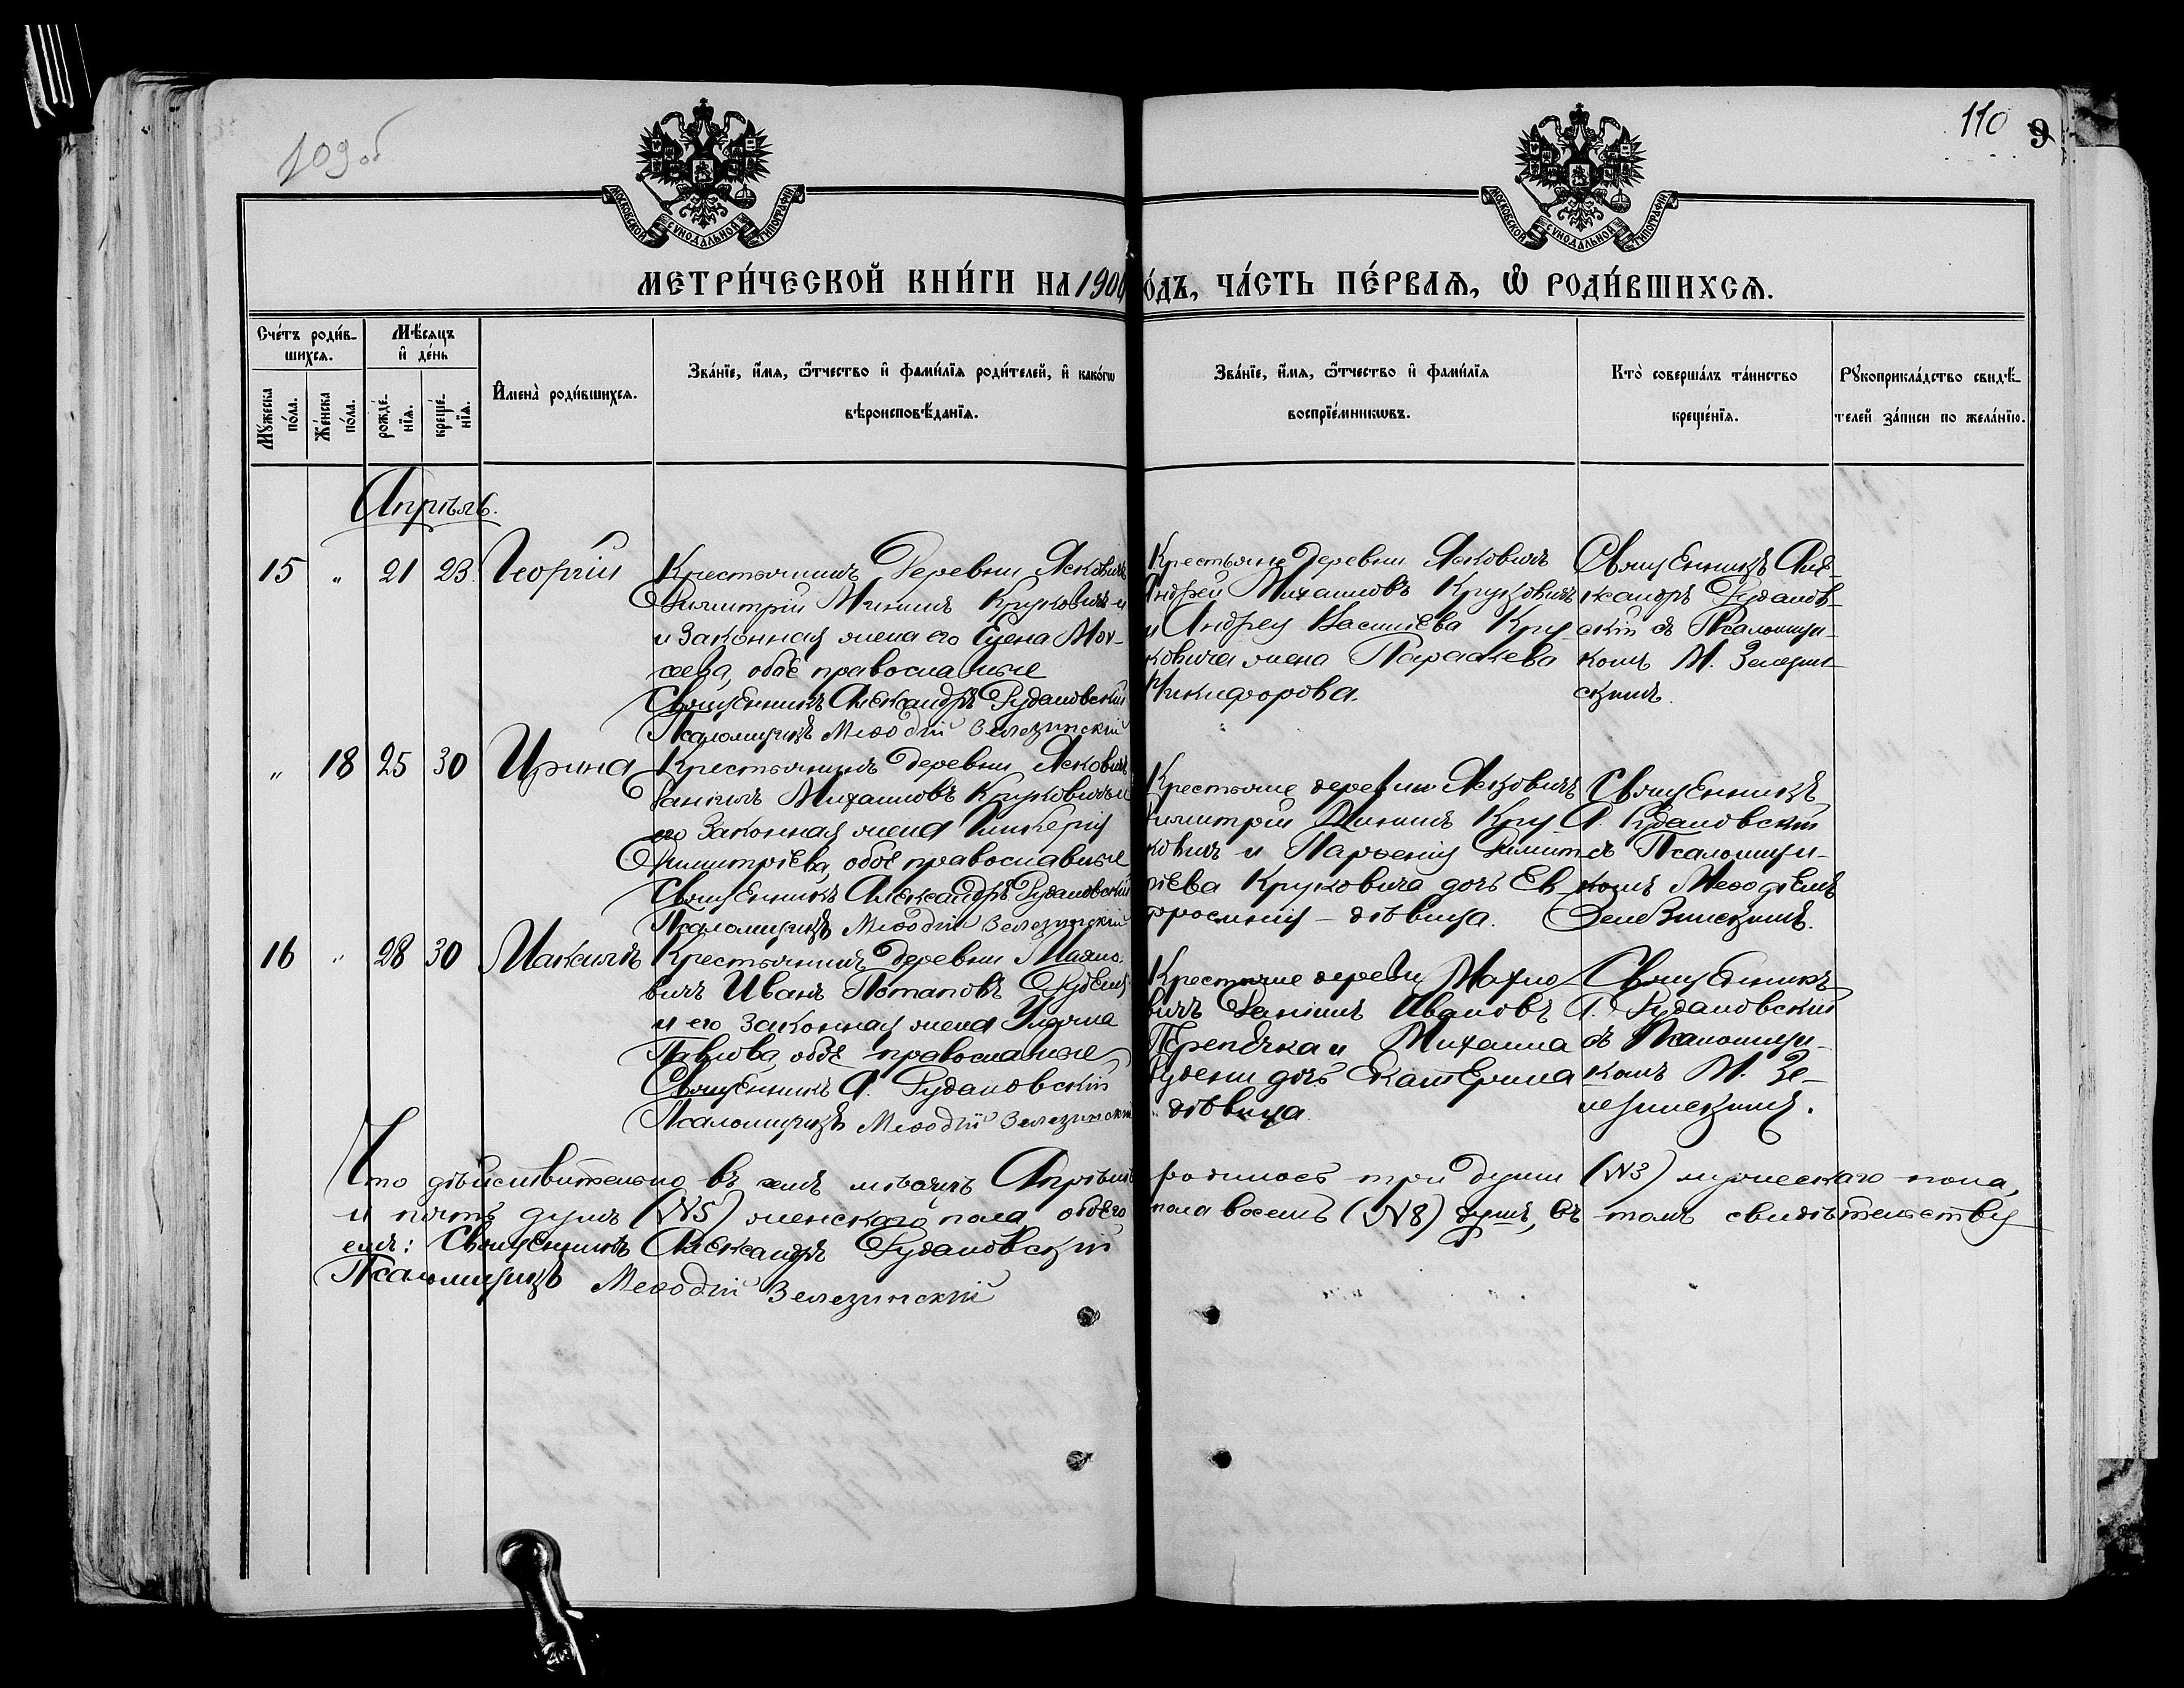 109 об
110 9
МОСКОВСКОЙ СѴНОДАЛЬНОЙ ТИПОГРАФІИ
МОСКОВСКОЙ СѴНОДАЛЬНОЙ ТИПОГРАФІИ
МЕТРИ́ЧЕСКОЙ КНИ́ГИ НА 190 О́ДЪ, ЧА́СТЬ ПЕ́РВАѦ, Ѡ РОДИ́ВШИХСѦ.
Сче́тъ роди́в-
шихся.
Мѣ́сяцъ
и де́нь
Мꙋжеска по́ла.
Же́нска по́ла.
рожде́-нїя.
креще́-нїя.
Имена̀ роди́вшихся.
Зва́нїе, и́мя, ѻтчество и фами́лїя роди́телей, и како́гѡ
вѣроисповѣ́данїя.
Зва́нїе, и́мя, ѻтчество и фами́лїя
воспрїе́мникѡвъ.
Кто̀ совершáлъ та́инство
креще́нїя.
Рꙋкоприкла́дство свидѣ́-
телей за́писи по жела́нїю.
Апрѣль.
15 " 21 23 Георгій
Крестьянинъ Деревни Ясковичъ
Димитрій Мининъ Круковичъ и
и Законная жена его Елена Мок-
хеева, обое православные
Священникъ Александръ Рудановскій
Псаломщикъ Меѳодій Зелезинскій
Крестьяне Деревни Ясковичъ
Андрей Михаиловъ Круковичъ
и Андрея Василіева Кру-
ковича жена Параскева
Никифорова.
Священникъ Але-
ксандръ Рудановс-
скій съ Псаломщи-
комъ М. Зелезин-
скимъ.
" 18 25 30 Ирина
Крестьянинъ деревни Ясковичъ
Даніилъ Михаиловъ Круковичъ и
его Законная жена Гликерія
Димитріева, обое православные
Священникъ Александръ Рудановскій
Псаломщикъ Меѳодій Зелезинскій
Крестьяне деревни Ясковичъ
Димитрій Мининъ Кру-
ковичъ и Парѳенія Димит-
ріева Круковича дочь Ев-
фросинія - дѣвица.
Священникъ
А. Рудановскій
съ Псаломщи-
комъ Меѳодіемъ
Зелезинскимъ.
16 " 28 30 Максимъ
Крестьянинъ деревни Махно-
вичъ Иванъ Потаповъ Рудены
и его Законная жена Ульяна
Павлова, обое православные
Священникъ А. Рудановскій
Псаломщикъ Меѳодій Зелезинскій
Крестьяне деревни Махно-
вичъ Даніилъ Ивановъ
Перепечка и Михаила
Рудени дочь Катерина
" дѣвица
Священникъ
А. Рудановскій
съ Псаломщи-
комъ М. Зе-
лезинскимъ.
Что дѣйствительно въ семъ мѣсяцѣ Апрѣлѣ родилось три души (№3) мужескаго пола,
и пять душъ (№5) женскаго пола обоего пола восемь (№8) душъ, въ томъ свидѣтельству
емъ: Священникъ Александръ Рудановскій
Псаломщикъ Меѳодій Зелезинскій